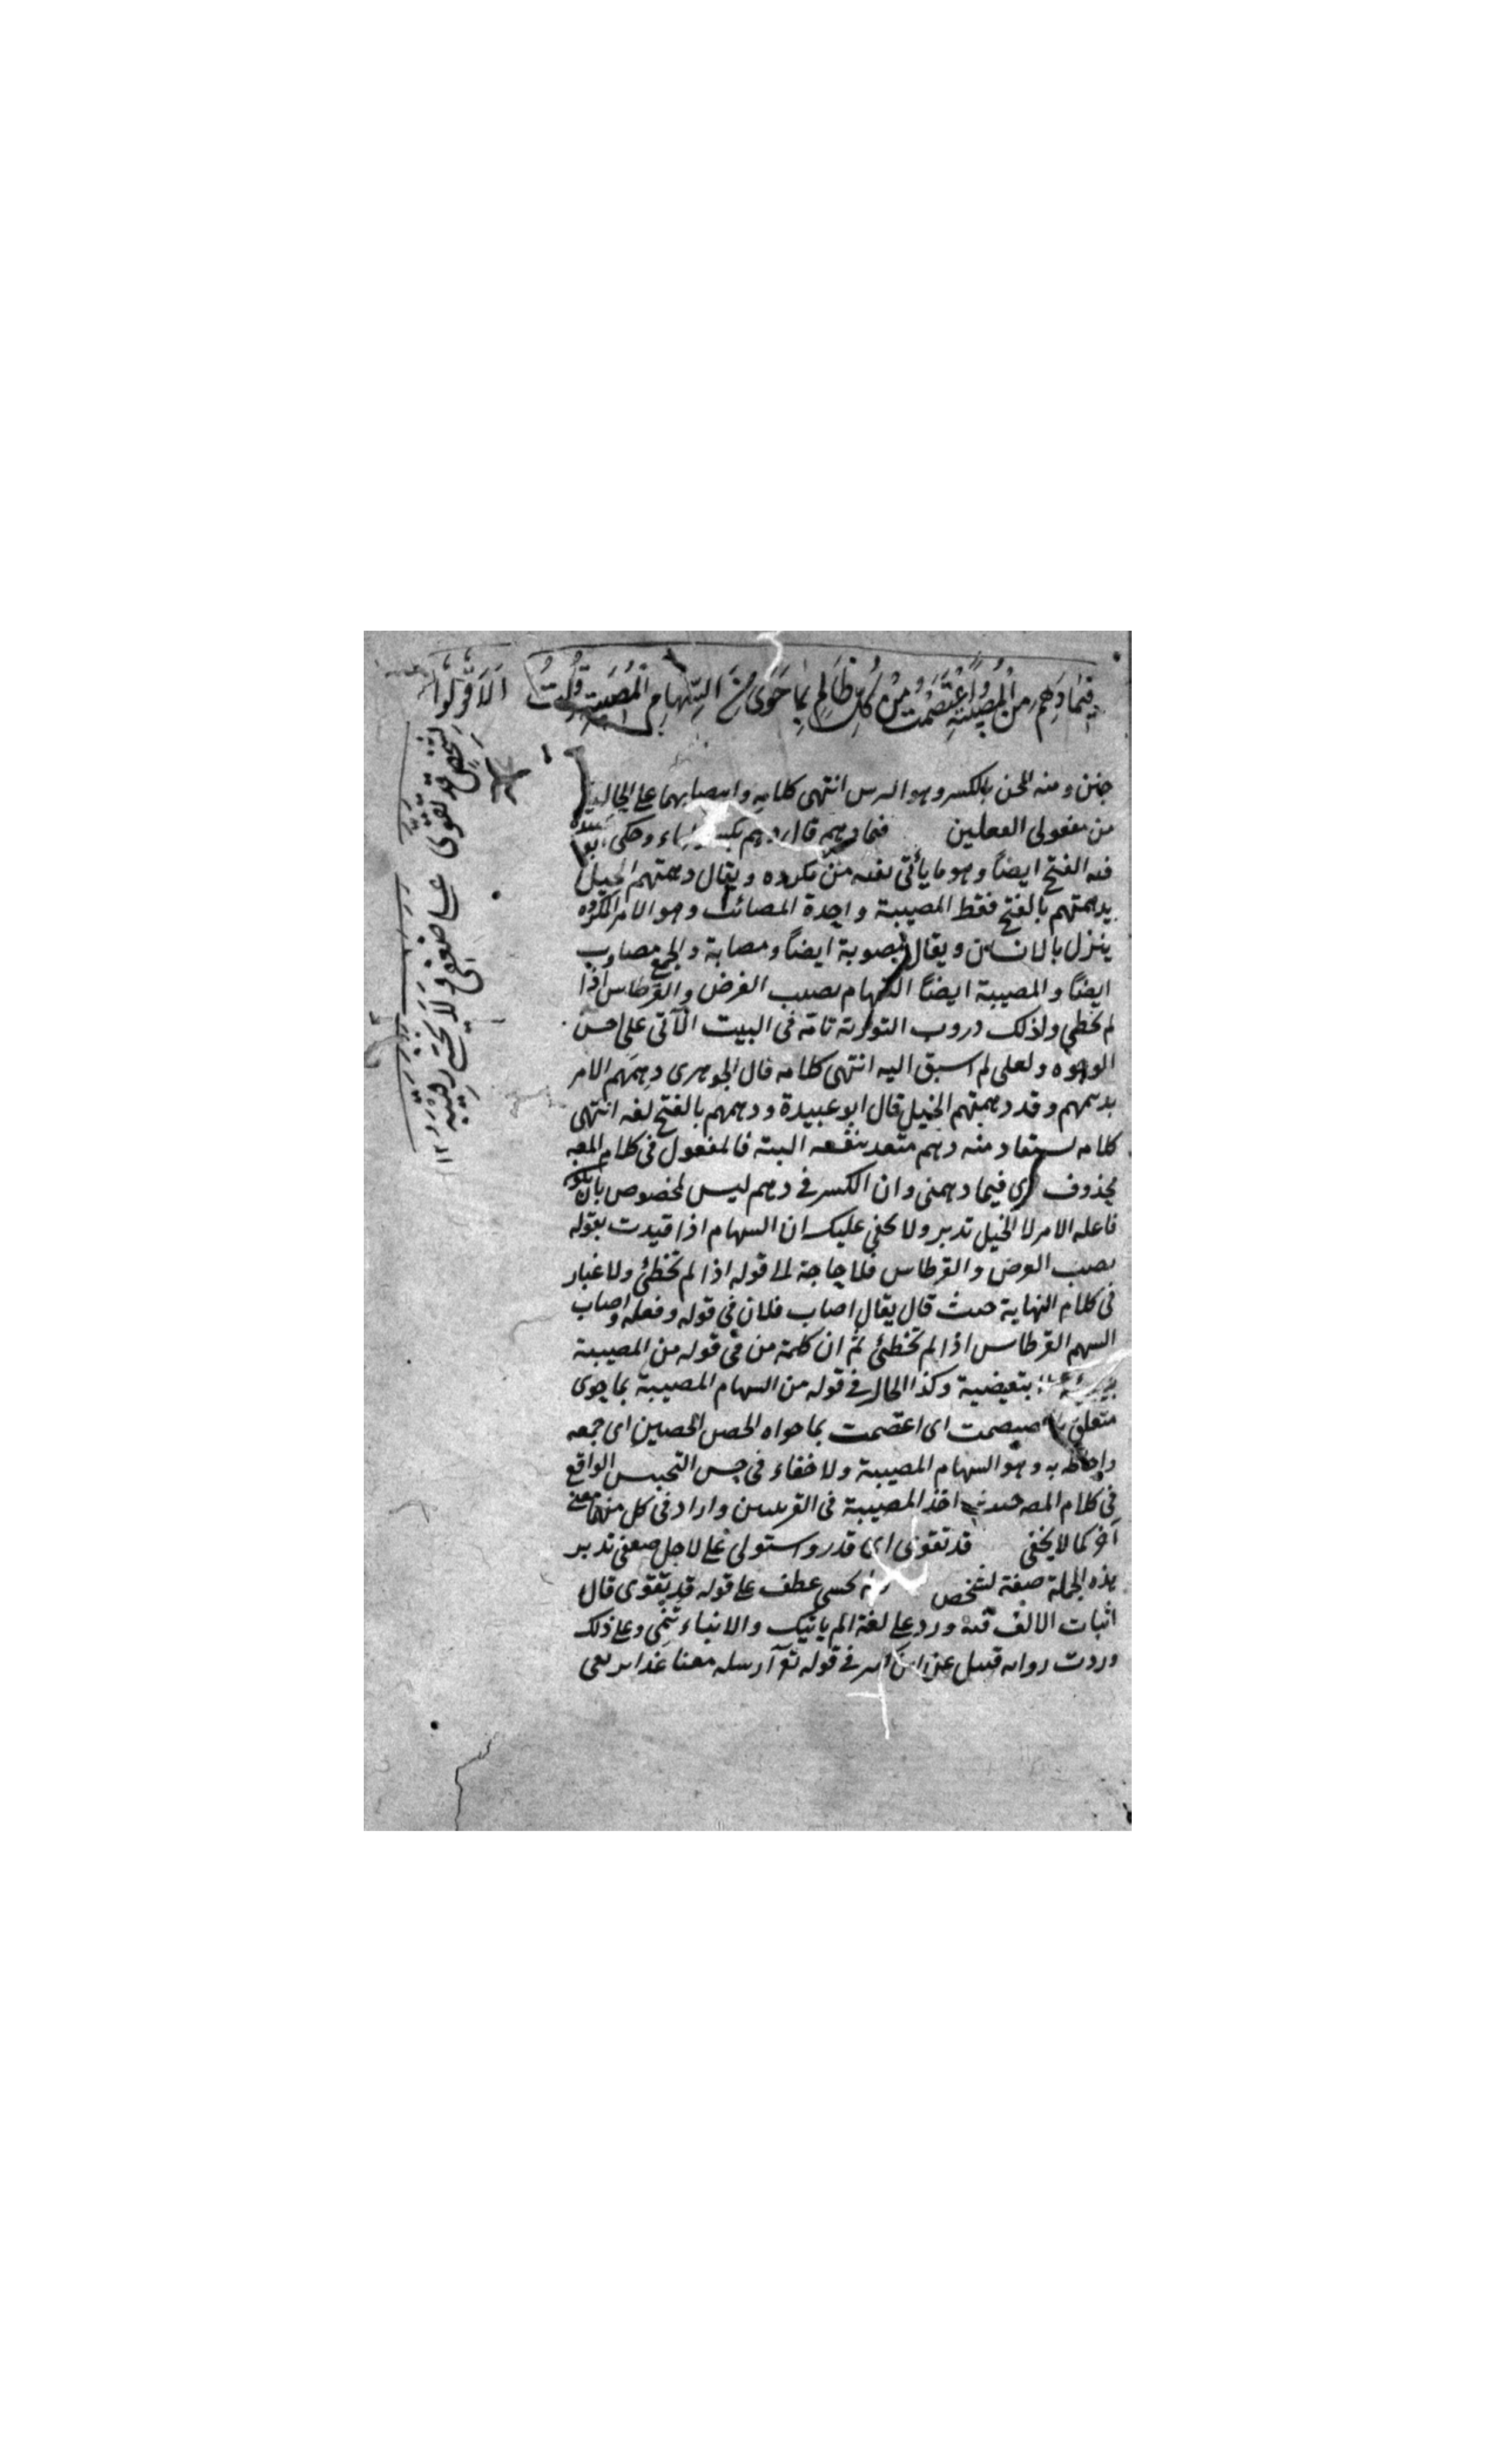 فِيمَا دَهِمَ مِنَ الْمُصِيبَةِ وَاعْتَصَمْتُ مِنْ كُلِّ ظَالِمٍ بِمَا حَوَى مِنَ السِّهَامِ الْمُصِيبَةِ وَقُلْتُ أَلَا قُولُوا
لِشَخْصٍ قَدْ تَقَوَّى عَلَى ضَعْفِي وَلَمْ يَخْشَ رَقِيبَهُ
جنن ومنه الجن بالكسر وهو الترس انتهى كلامه وانتصابهما على الحالية
من مفعولى الفعلين فيما دهم قال دهم بكسر الهاء وحكى ابو عبيدة
فيه الفتح ايضا وهو ما يأتى بغتة من مكروه ويقال دهمتهم الخيل
يدهمتهم بالفتح فقط المصيبة واحدة المصائب وهو الامر المكروه
ينزل بالانسان ويقال مصوبة ايضا ومصابة والجمع مصاوب
ايضا والمصيبة ايضا السهام تصيب الغرض والقرطاس اذا
لم تخطئ ولذلك دروب التورية تامة فى البيت الآتى على احسن
الوجوه ولعلى لم اسبق اليه انتهى كلامه قال الجوهرى دهمهم الامر
يدهمهم وقد دهمتهم الخيل قال ابو عبيدة ودهمهم بالفتح لغة انتهى
كلامه يستفاد منه دهم متعد بنفسه البتة فالمفعول فى كلام المصه
محذوف اى فيما دهمنى وان الكسر فى دهم ليس لمخصوص بان يكون
فاعله الامر لا الخيل تدبر ولا يخفى عليك ان السهام اذا قيدت بقوله
تصيب الغرض والقرطاس فلا حاجة الى قوله اذا لم تخطئ ولا غبار
فى كلام النهاية حيث قال يقال اصاب فلان فى قوله وفعله واصاب
السهم القرطاس اذا لم تخطئ ثم ان كلمة من فى قوله من المصيبة
تبعيضية وكذا الحال فى قوله من السهام المصيبة بما حوى
متعلق اعتصمت اى اعتصمت بما حواه الحصن الحصين اى جمعه
واحاط به وهو السهام المصيبة ولا خفاء فى حسن التجنيس الواقع
فى كلام المصه حيث اخذ المصيبة فى القرينتين واراد فى كل منهما معنى
آخر كما لا يخفى قد تقوى اى قدر واستولى على لاجل ضعفى تدبر
هذه الجملة صفة لشخص ولم يخش عطف على قوله قد تقوى قال
اثبات الالف فيه ورد على لغة الم يأتيك والانباء تنمى وعلى ذلك
وردت رواية قنبل عن ابن كثير فى قوله تع أرسله معنا غدا يرتعى